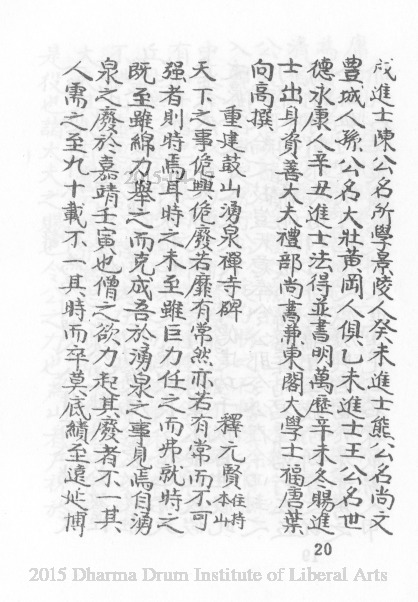 戍進士陳公名所學景陵人癸未進士熊公名尚文
豊城人孫公名大壯黃岡人俱乙未進士王公名世
德永康人辛丑進士法得並書明萬歷辛未冬賜進
士出身資善大夫禮部尚書兼東閣大學士福唐葉
向高撰
重建鼓山湧泉禪寺碑
釋元賢住持本山
天下之事倐興倐廢若靡有常然亦若有常而不可
强者則時焉耳時之未至雖巨力任之而弗就時之
既至雖綿力舉之而克成吾於湧泉之事見焉自湧
泉之廢於嘉靖壬寅也僧之欲力起其廢者不一其
人需之至九十載不一其時而卒莫底績至遠延博
20
2015 Dharma Drum Institute of Liberal Arts